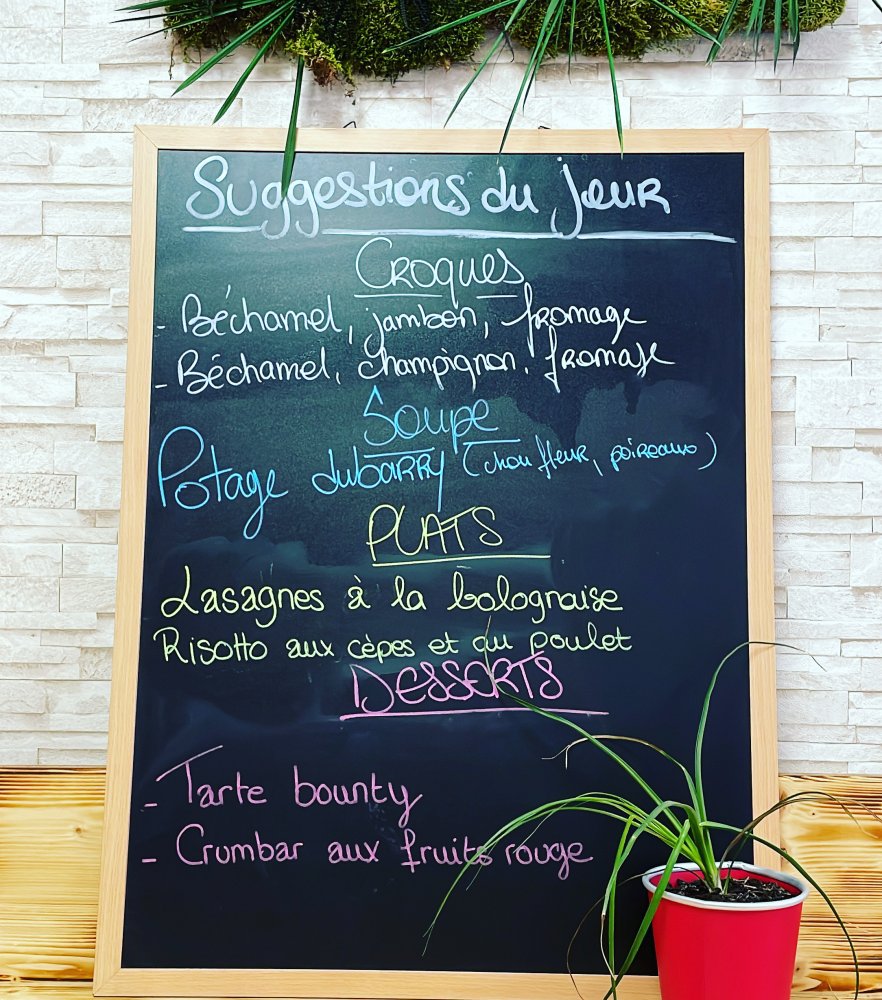 Suggestions du jour
Croques
- Béchamel, jambon, fromage
- Béchamel, champignon, fromage
Soupe
Potage dubarry (chou fleur, poireaux)
PLATS
Lasagnes à la bolognaise
Risotto aux cèpes et au poulet
DESSERTS
- Tarte bounty
- Crumbar aux fruits rouge